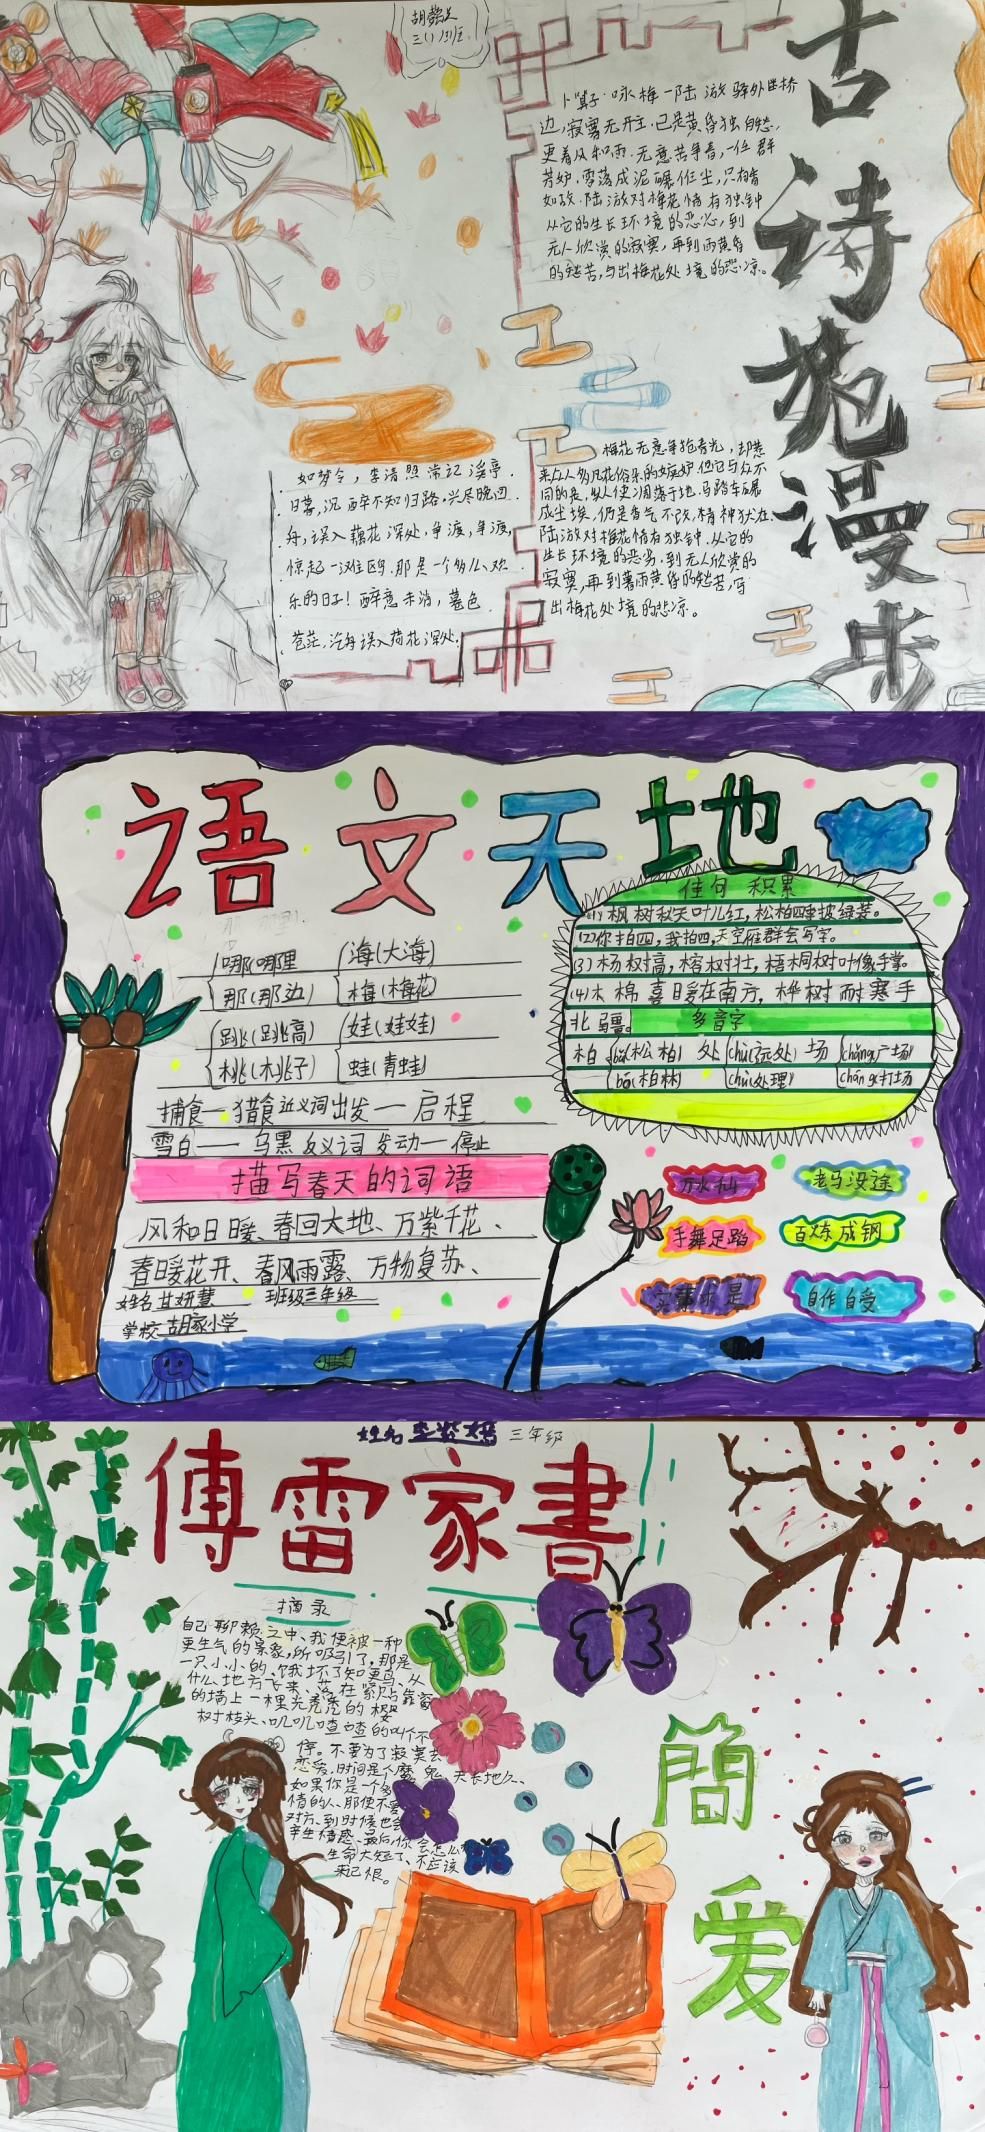 三(1)班
古诗苑漫步
卜算子·咏梅-陆游 驿外断桥
边,寂寞无开主.已是黄昏独自愁,
更着风和雨.无意苦争春,一任群
芳妒.零落成泥碾作尘,只有香
如故.陆游对梅花情有独钟
从它的生长环境的恶劣,到
无人欣赏的寂寞,再到雨黄昏
的愁苦,写出梅花处境的悲凉。
梅花无意争抢春光,却惹
同的是,纵使凋落于地.马踏车碾
成尘埃,仍是香气不改,精神犹在.
陆游对梅花情有独钟.从它的
生长环境的恶劣.到无人欣赏的
寂寞,再到暮雨黄昏的愁苦,写
出梅花处境的悲凉。
如梦令,李清照 常记溪亭.
日暮,沉醉不知归路.兴尽晚回
舟,误入藕花深处,争渡,争渡,
惊起一滩鸥.那是一个多么欢
乐的日子!醉意未消,暮色
苍茫,误入荷花深处.
语文天地
哪(哪里
那(那边)
海(大海)
梅(梅花)
跳(跳高)
桃(桃子)
娃(娃娃)
蛙(青蛙)
捕食—猎食 近义词 出发—启程
雪白——乌黑 反义词 发动—停止
描写春天的词语
风和日暖、春回大地、万紫千花、
春暖花开、春风雨露、万物复苏、
姓名 甘妍慧 班级三年级
学校 胡家小学
佳句 积累
(1)枫树秋天叶儿红,松柏四季披绿装。
(2)你拍四,我拍四,天空雁群会写字。
(3)杨树高,榕树壮,梧桐树叶像手掌。
(4)木棉喜暖在南方,桦树耐寒手
北疆。
多音字
柏 bǎi(松柏) 处 chù(远处) 场 chǎng(广场)
bǎi(柏林) chǔ(处理) cháng(打场
老马没途
手舞足蹈
百炼成钢
实事求是
自作自受
姓名 三年级
傅雷家書
摘录
自己聊赖之中、我便被一种
更生气的景象,所吸引了,那是
一只小小的、饿坏了知更鸟、从
什么地方飞来、落在紧贴靠窗
的墙上一棵光秃秃的樱
树枝头、叽叽喳喳的叫个不
停。不要为了寂寞去
恋爱,时间是个魔鬼、天长地久、
如果你是一个多
情的人、那便不爱
对方、到时候也会
幸生情感、最后你会怎么
生命太短了、不应该
来记恨。
簡爱